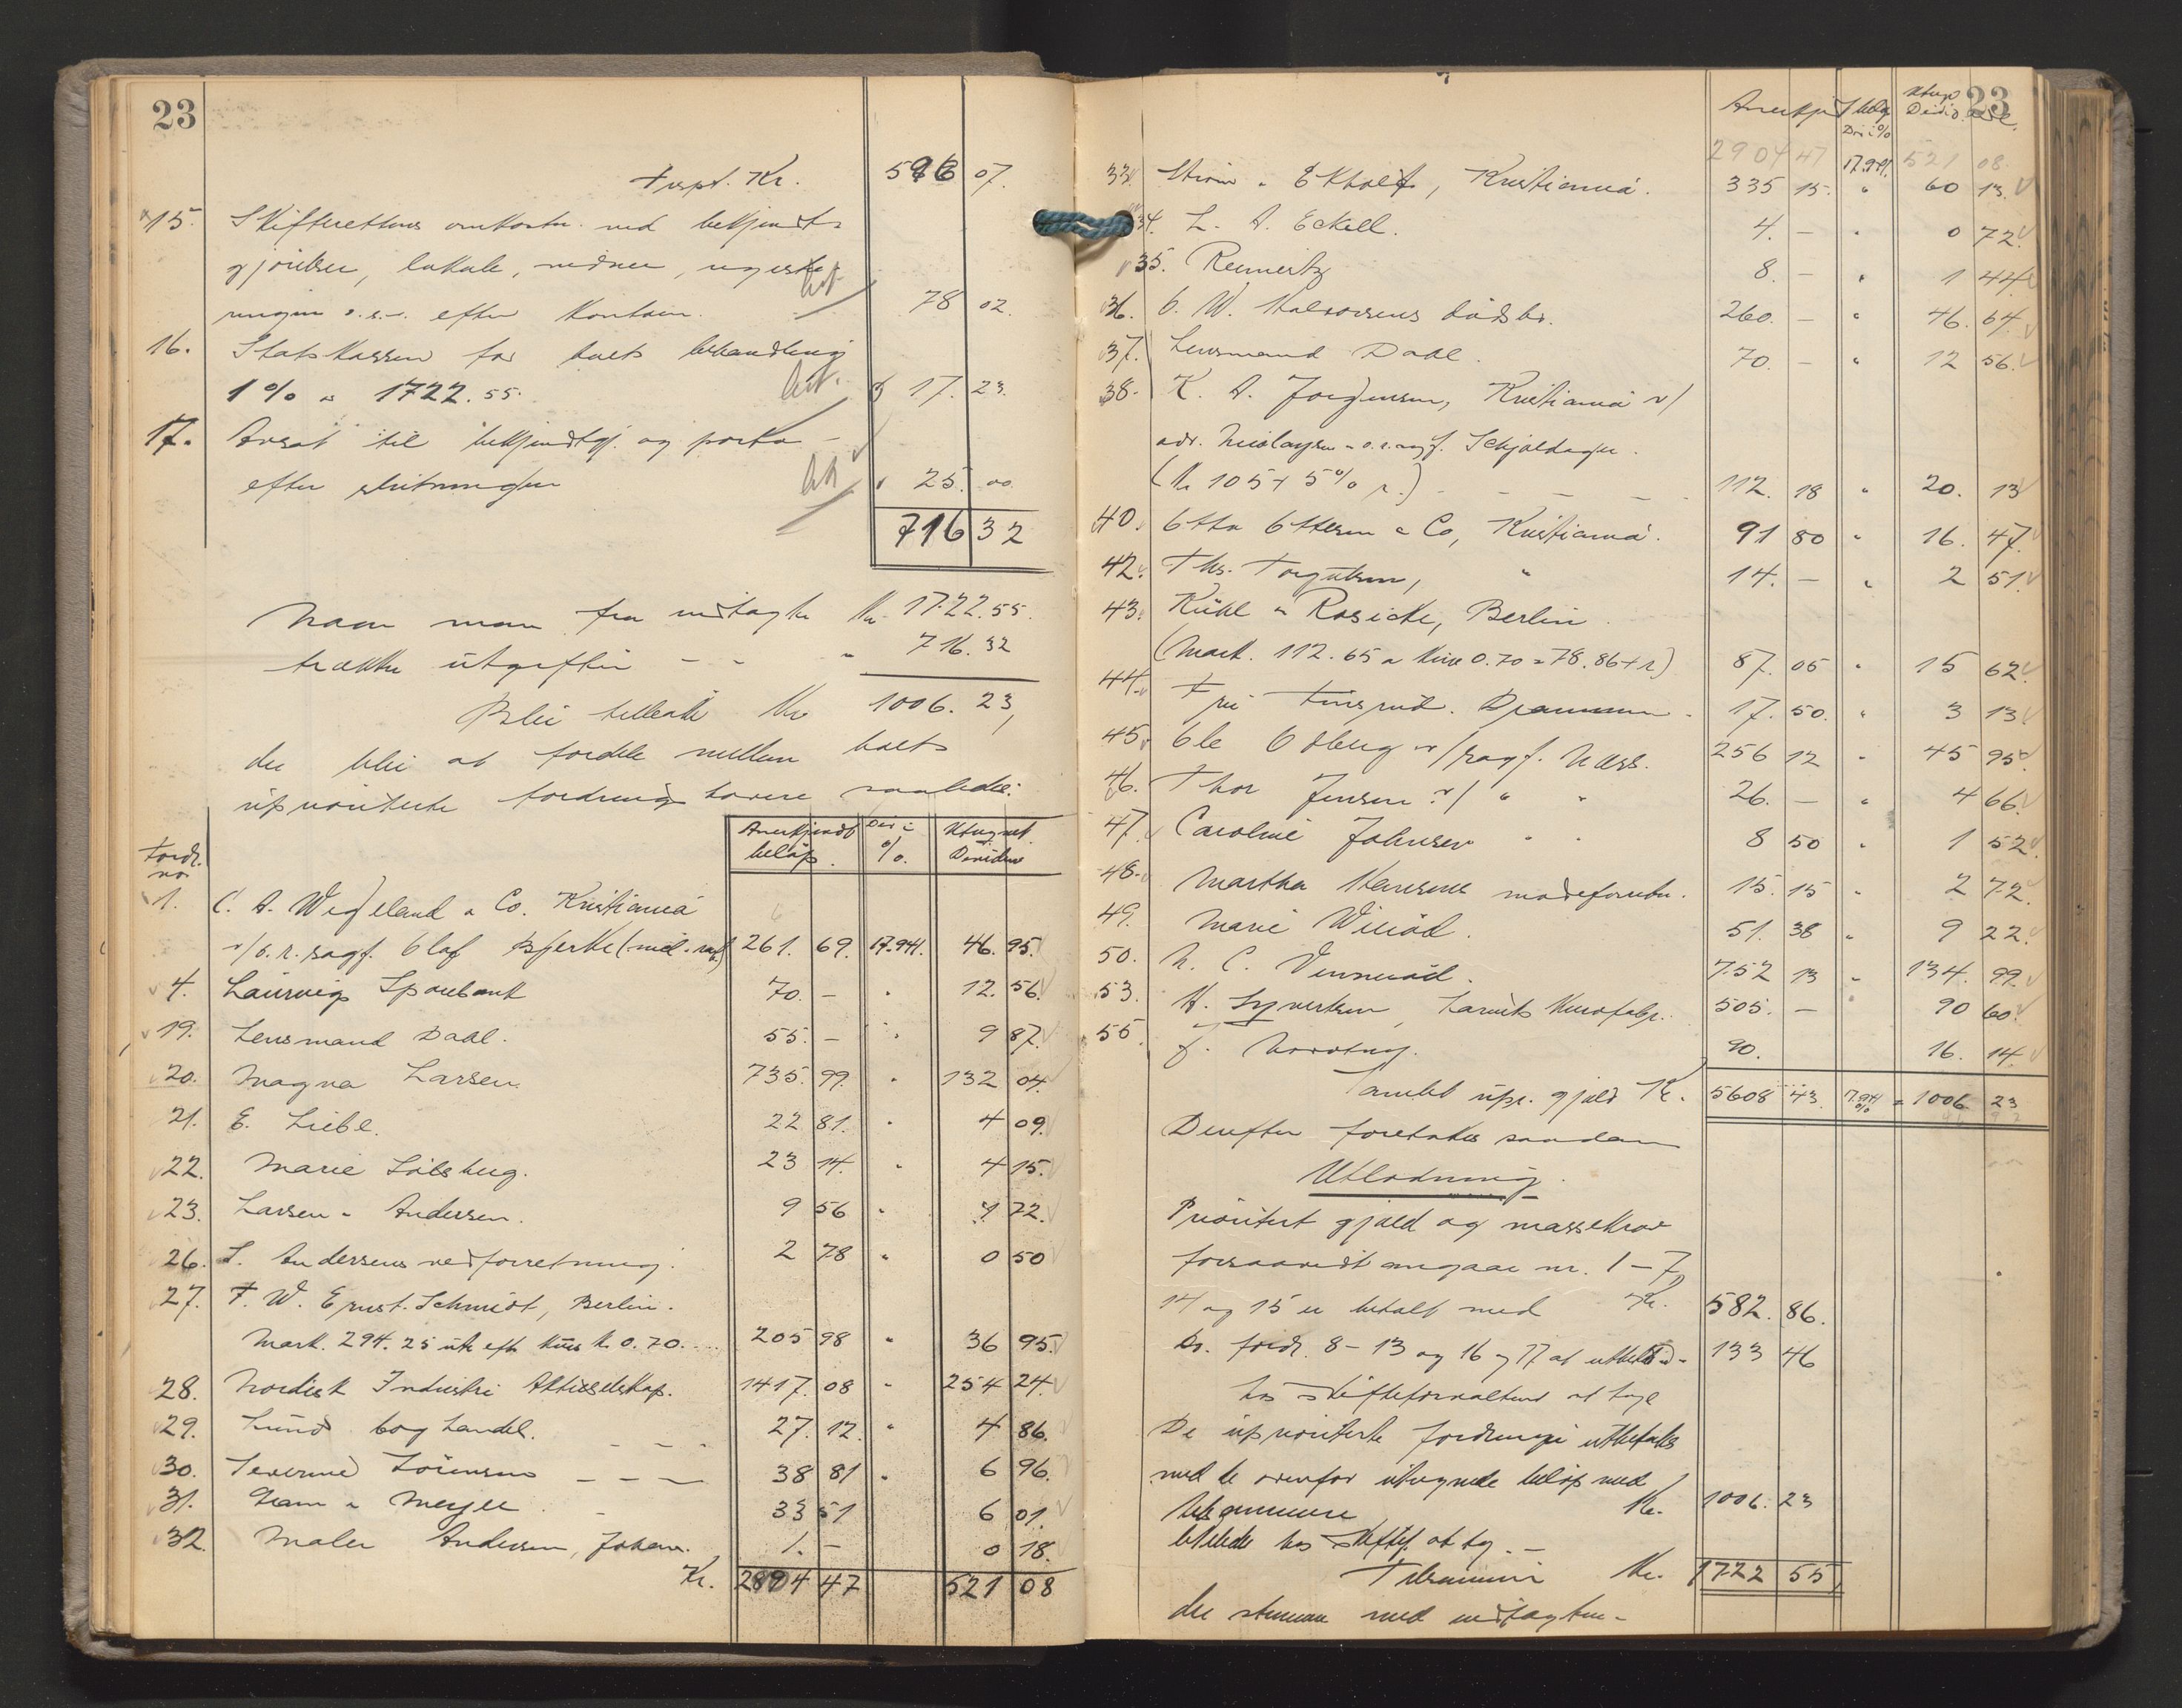 23
Trspt. Kr. 596 07.
15. Skifterettens omkostn. ved bekjendt-
gjörelser, lokale,
ringen o.s.v. efter kontoen. 78 02.
16. Statskassen for boets behandling
1 % av 1722.55. 17. 23.
17. Avsat til bekjendtgj. og porto
efter slutningen 25. 00
716 32
Naar man fra indtægter Kr. 1722.55.
trækker utgifter - - " 716.32
Blir tilbake Kr 1006. 23,
der blir at fordele mellem boets
uprioriterte fordringshavere saaledes:
Fordr. no Anerkjendt beløp. Div i %. Utregnet Dividende
1. C. A. Wegeland & Co. Kristiania
v/o.r.sagf. Olaf Bjerke 261. 69. 17.941. 46. 95.
4. Laurvig Sparebank 70. — " 12. 56.
19. Lensmand Dahl. 55. — " 9 87.
20. Magna Larsen. 735. 99. " 132 04.
21. E. Liebl. 22 81. " 4 09.
22. Marie Solsberg. 23 14. " 4 15.
23. Larsen & Andersen. 9 56 " 1 72.
26. S. Andersens vedforretning. 2 78 " 0 50
27. F. W. Ernst Schmidt, Berlin.
Mark. 294. 25 utr. eft. kurs k. 0.70. 205 98 " 36 95.
28. Nordisk Industri Aktieselskap. 1417. 08 " 254 24.
29. Lund boghandel. 27. 12. " 4 86.
30. Severine Sörensen 38 81 " 6 96.
31. Gram & Meyer. 33 51 6 01.
32. Maler Andersen, Johan. 1. — 0 18.
Kr. 2904 47 521 08
23
Anerkjendt Utbet. Div i % Utregn Divid.
2904 47 17.941. 521 08.
33. Ström & Ekholt, Kristiania. 335 15. " 60 13.
34. L. A. Eckell. 4. — " 0 72.
35. Reimertz 8. — " 1 44.
36. O. W. Halvorsens dödsbo. 260. — " 46. 64.
37. Lensmand Dahl. 70. — " 12 56.
38. K. A. Jörgensen, Kristiania v/
adv. Nicolaysen & o.r.sagf. Schjoldager.
(Kr 105 + 5 % r.) 112. 18 " 20. 13
40. Otto Ottersen & Co, Kristiania. 91 80 " 16. 47.
42. Ths. Torgersen, " 14. — " 2 51.
43. Kühl & Rosicke, Berlin.
(Mark. 112.65 a kurs 0.70 = 78.86 + r) 87. 05 " 15 62.
44. Fru Finsrud. Drammen. 17. 50. " 3 13.
45. Ole Odberg v/ sagf. Næss. 256 12 " 45 95.
46. Thor Jensen v/ " " 26. — " 4 66.
47. Caroline Johnsen " " 8 50 " 1 52.
48. Martha Hansens modeforretn. 15. 15 " 2 72.
49. Marie Wiliöd. 51. 38 " 9 22.
50. N. C. Vennerød. 752 13 " 134. 99.
53. H. Syvertsen, Larviks 505. — 90 60.
55. J. Nordtug. 90. 16. 14.
Samlet upr. gjæld Kr. 5608 43. 17.941 % = 1006 23
Derefter foretokes saadan
Utlodning.
Prioritert gjæld og massekrav
forsaavidt angaar nr. 1 – 7,
14 og 15 er betalt med Kr. 582. 86.
Do. fordr. 8 – 13 og 16 og 17 at utbetale 133 46
hos skifteforvalteren at hæve
De uprioriterte fordringer utbetales
med de ovenfor utregnede beløp med
tilsammen Kr. 1006. 23
hos skiftef. at
Tilsammen Kr. 1722 55
der stemmer med indtægten.